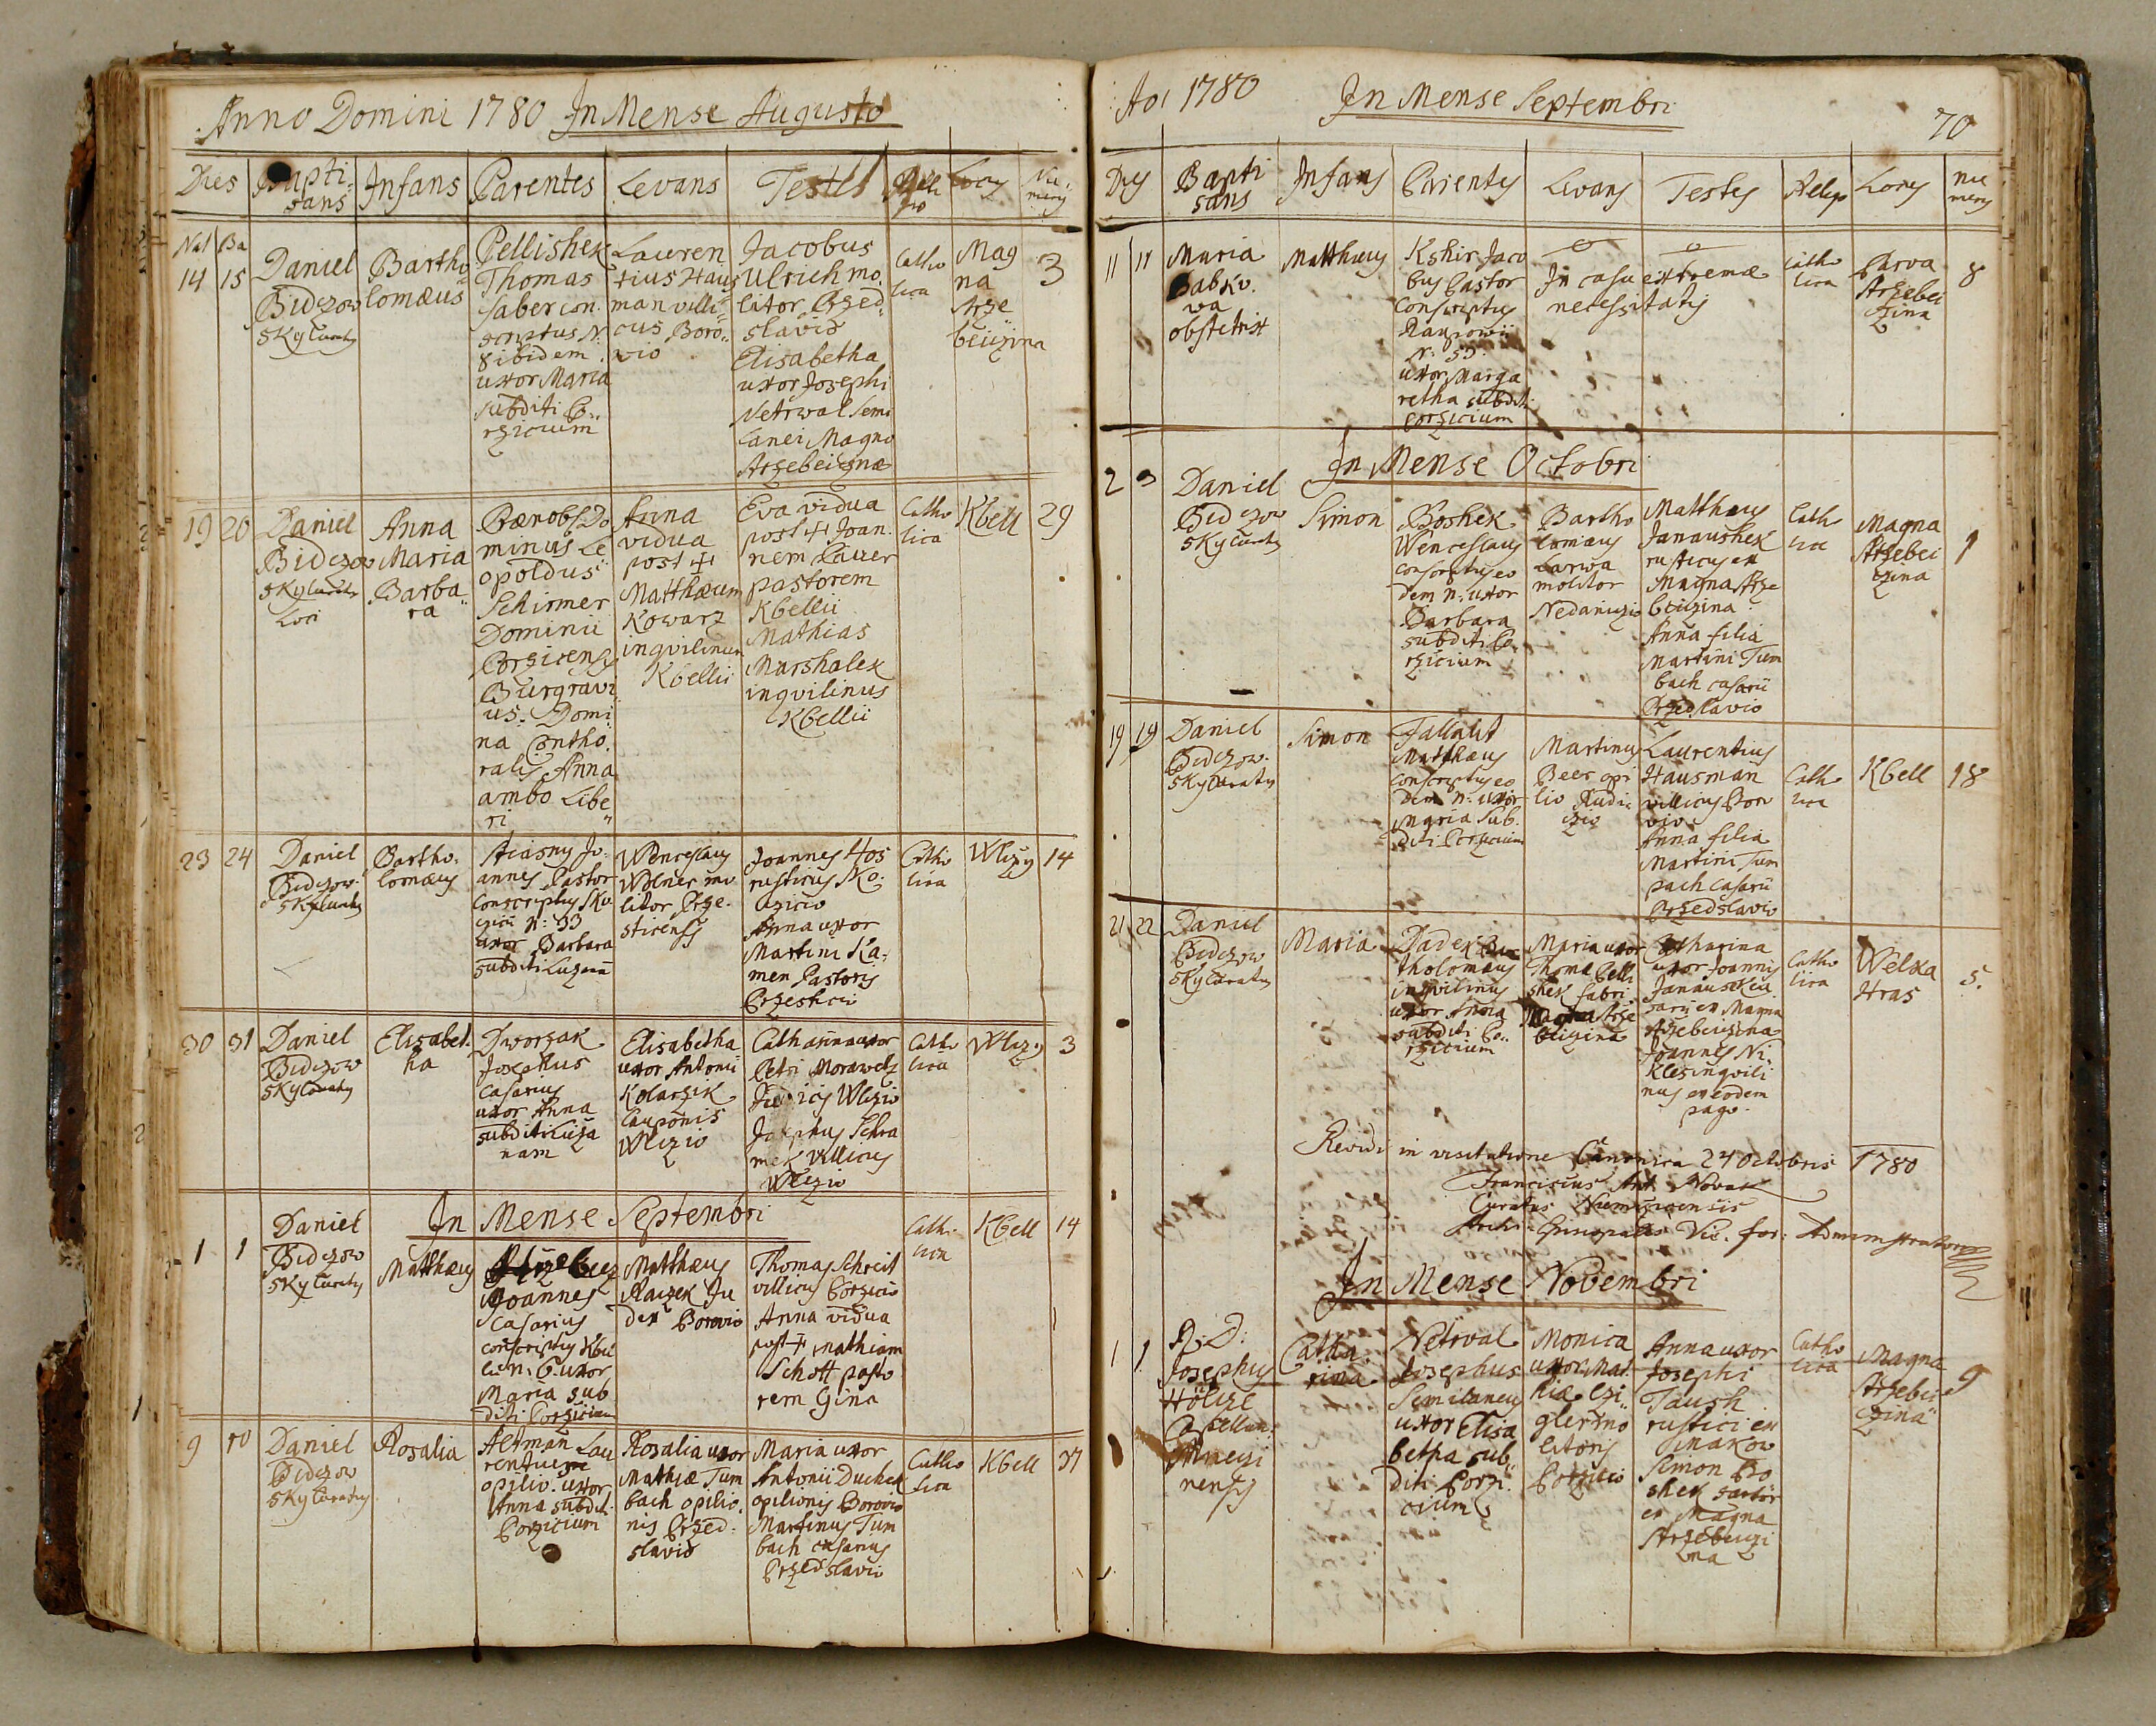 Anno Domini 1780 In Mense Augusto
Dies Bapti- Infans Parentes Levans Testes Relli Locus Nu-
sans gio merus
Nat Ba
14 15
Daniel
Bidczow
sky Curatus
Bartho
lomæus
Pellishek
Thomas
faber con-
scriptus N.
8 ibidem
uxor Maria
subditi Po-
rzicium
Lauren
tius Haus
man villi-
cus Boro-
vio
Jacobus
Ulrich mo-
litor Przed-
slavio
Elisabetha
uxor Josephi
Netrwal Semi
lanei Magno
Strzebeiczna
Catho
lica
Mag
na
Strze
beiczina
3
19 20
Daniel
Bidczow
sky Curatus
Loci
Anna
Maria
Barba
ra
Prænobs. Do
minus Le
opoldus
Schirmer
Dominii
Porzicensis
Burgravi
us. Domi
na Contho
ralis Anna
ambo Libe
ri
Anna
vidua
post +
Matthæum
Kowarz
inqvilinum
Kbellii
Eva vidua
post + Joan-
nem Pauer
pastorem
Kbellii
Mathias
Marshalek
inqvilinus
Kbellii
Catho
lica
Kbell
29
23 24
Daniel
Bidczow
sky Curatus
Bartho-
lomæus
Stiasny Jo-
annes Pastor
conscriptus Sko
czicii N: 33
uxor Barbara
subditi Luzan
Wenceslaus
Wolner mo
litor Prze-
sticensis
Joannes Hos
rusticus Sko-
czicio
Anna uxor
Martini Ka-
men Pastoris
Przeshcii
Catho
lica
Wlczy
14
30 31
Daniel
Bidczow
sky Curatus
Elisabet-
ha
Dworzak
Josephus
Casarius
uxor Anna
subditi Luza
nam
Elisabetha
uxor Antonii
Kolarzik
Cauponis
Wlczio
Catharina uxor
Petri Morawetz
Judicis Wlczio
Josephus Schra
mek villicus
Wlczio
Catho
lica
Wlczy
3
In Mense Septembri
1 1
Daniel
Bidczow
sky Curatus
Matthæus
Joannes
Casarius
conscriptus Kbel
lii N: 6. uxor
Maria sub
diti Porzicium
Matthæus
Raczek Ju
dex Borovio
Thomas Schreit
villicus Porzicio
Anna vidua
post + Mathiam
Schott pasto
rem Gina
Catho
lica
Kbell
14
9 10
Daniel
Bidczow
sky Curatus
Rosalia
Altman Lau
rentius
opilio. uxor
Anna subdit.
Porzicium
Rosalia uxor
Mathiæ Tum
bach opilio-
nis Przed-
slavio
Maria uxor
Antonii Duchek
opilionis Borovio
Martinus Tum
bach casarius
Przedslavio
Catho
lica
Kbell
37
Ao 1780 In Mense Septembri 70
Dies Bapti Infans Parentes Levans Testes Relig. Locus nu
sans merus
11 11
Maria
Babko-
wa
obstetrix
Matthæus
Kshir Jaco
bus Pastor
conscriptus
N: 55.
uxor Marga
retha subditi
Porzicium
In casu extremæ
necessitatis
Catho
lica
Parva
Strzebei
czina
8
In Mense Octobri
2 3
Daniel
Bidczow
sky Curatus
Simon
Boshek
Wenceslaus
conscriptus eo
dem N: uxor
Barbara
subditi Po-
rzicium
Bartho
lomæus
Larwa
molitor
Nedaniczio
Matthæus
Janaushek
rusticus ex
Magna Strze
beiczina
Anna filia
Martini Tum
bach casarii
Przedslavio
Catho
lica
Magna
Strzebei
czina
1
19 19
Daniel
Bidczow-
sky Curatus
Simon
Fallout
Matthæus
conscriptus eo
dem N: uxor
Maria sub-
diti Porzicium
Martinus
Beer opi
lio Rudi
czio
Laurentius
Hausman
villicus Boro
vio
Anna filia
Martini Tum
pach casarii
Przedslavio
Catho
lica
Kbell
18
21 22
Daniel
Bidczow
sky Curatus
Maria
Dadek Bar
tholomæus
inqvilinus
uxor Anna
subditi Po-
rzicium
Maria uxor
Thomæ Pelli
shek fabri
Magna Strze
beiczina
Catharina
uxor Joannis
Janausek ca
sarii ex Magna
Strzebeiczina
Joannes Ni-
kles inqvili
nus ex eodem
pago
Catho
lica
Welka
Hras
5.
Revidi in visitatione Canonica 24 Octobris 1780
Franciscus Ant. Novak
Curatus Niemczicensis
Vic. for: Administrator
In Mense Novembri
1 1
A: D:
Josephus
Hölzl
Capellan.
Mnetzi
nensis
Catha-
rina
Netrval
Josephus
Semilaneus
uxor Elisa
betha sub-
diti Porzi-
cium
Monica
uxor Mat-
hiæ Czi
gler mo
litoris
Porzicio
Anna uxor
Josephi
Taush
rustici ex
Sinakow
Simon Bo
shek sartor
ex Magna
Strzebeiczi
na
Catho
lica
Magna
Strzebei
czina
9